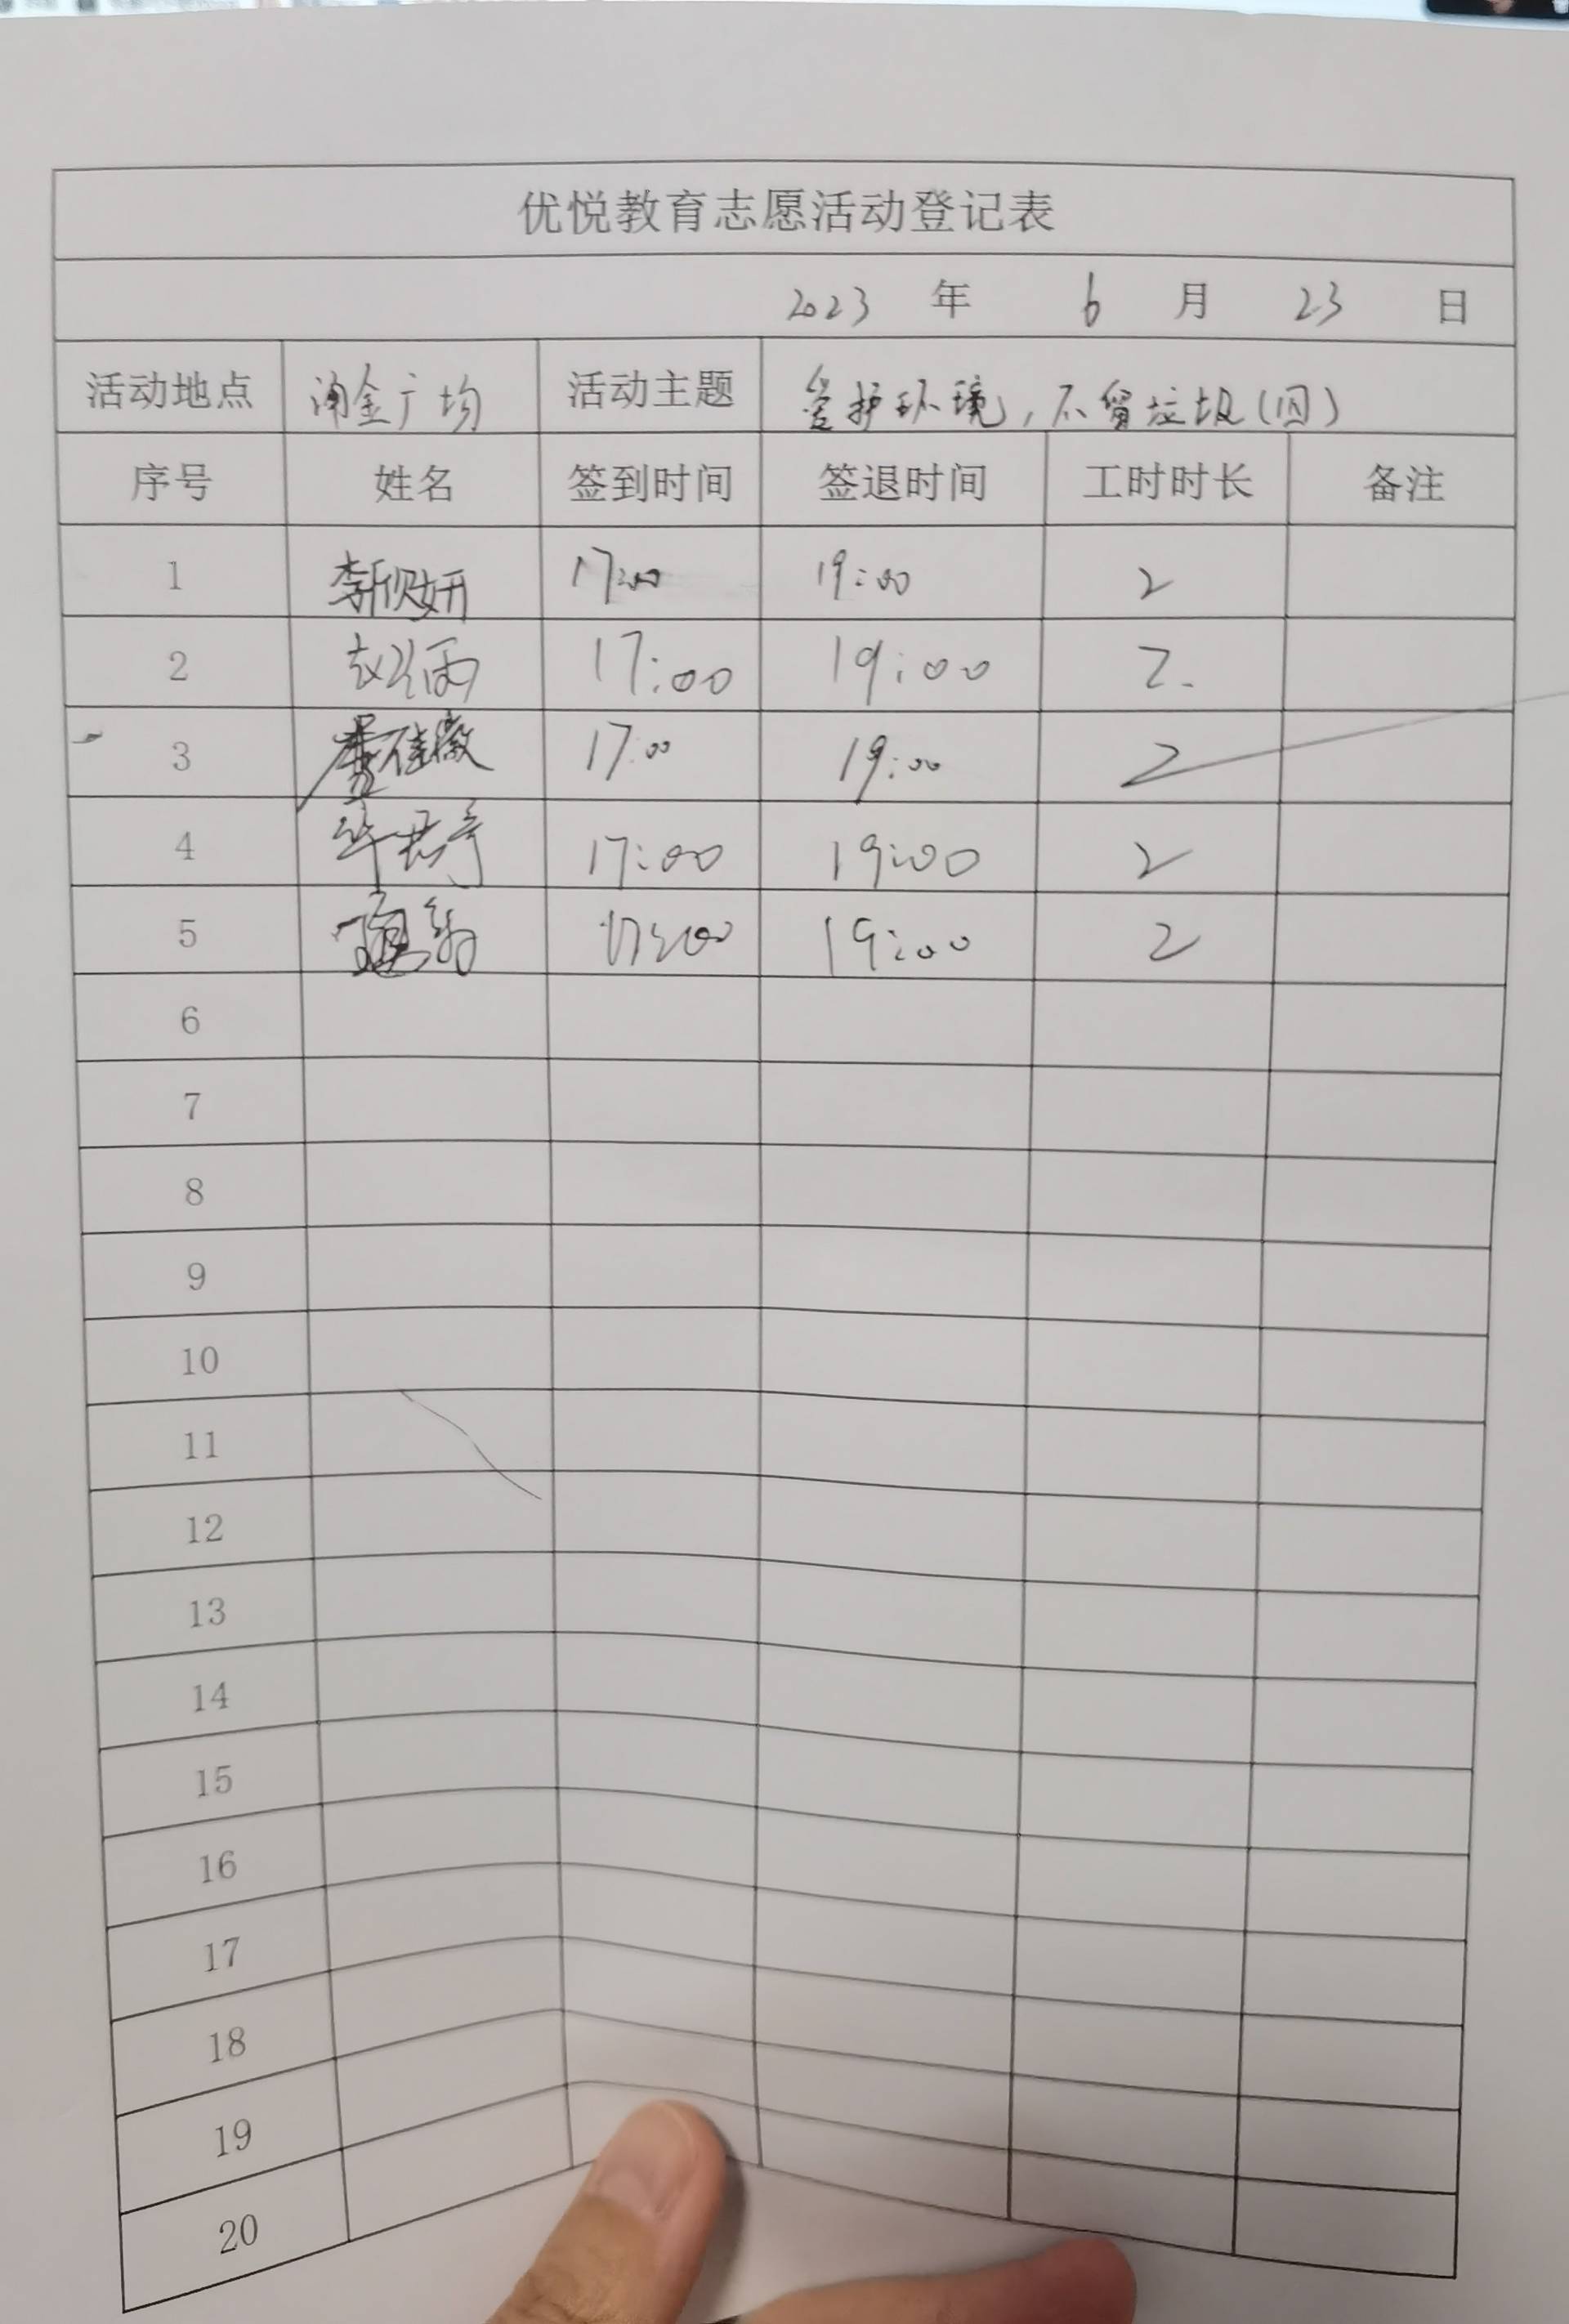 优悦教育志愿活动登记表
2023 年 6 月 23 日
活动地点 淘金广场 活动主题 爱护环境，不留垃圾（四）
序号 姓名 签到时间 签退时间 工时时长 备注
1 李欣妍 17:00 19:00 2
2 17:00 19:00 2.
3 17:00 19:00 2
4 17:00 19:00 2
5 17:00 19:00 2
6
7
8
9
10
11
12
13
14
15
16
17
18
19
20